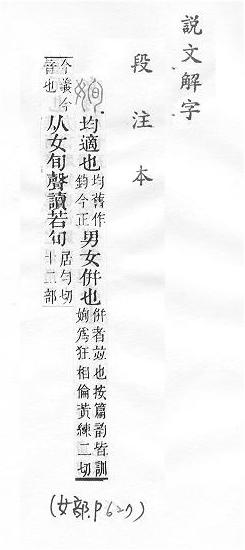 説文解字
段注本
均適也均舊作鈞今正男女併也併者竝也按篇韵皆訓姰爲狂相倫黄練二切
今議今音也从女旬聲讀若旬居匀切十二部
(女部.P627)